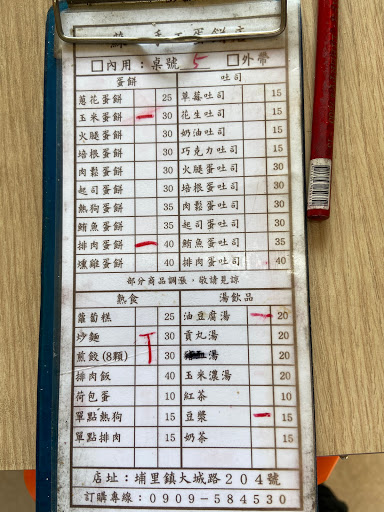 香 蛋餅店
□內用：桌號 5 □外帶
蛋餅 吐司
蔥花蛋餅 25 草莓吐司 15
玉米蛋餅 一 30 花生吐司 15
火腿蛋餅 30 奶油吐司 15
培根蛋餅 30 巧克力吐司 15
肉鬆蛋餅 30 火腿蛋吐司 30
起司蛋餅 30 培根蛋吐司 30
熱狗蛋餅 35 肉鬆蛋吐司 30
鮪魚蛋餅 35 起司蛋吐司 30
排肉蛋餅 一 40 鮪魚蛋吐司 35
燻雞蛋餅 40 排肉蛋吐司 40
部分商品調漲，敬請見諒
熱食 湯飲品
蘿蔔糕 25 油豆腐湯 一 20
炒麵 30 貢丸湯 20
煎餃(8顆) 30 湯 20
排肉飯 40 玉米濃湯 20
荷包蛋 10 紅茶 10
單點熱狗 15 豆漿 一 15
單點排肉 15 奶茶 15
店址：埔里鎮大城路204號
訂購專線：0909-584530